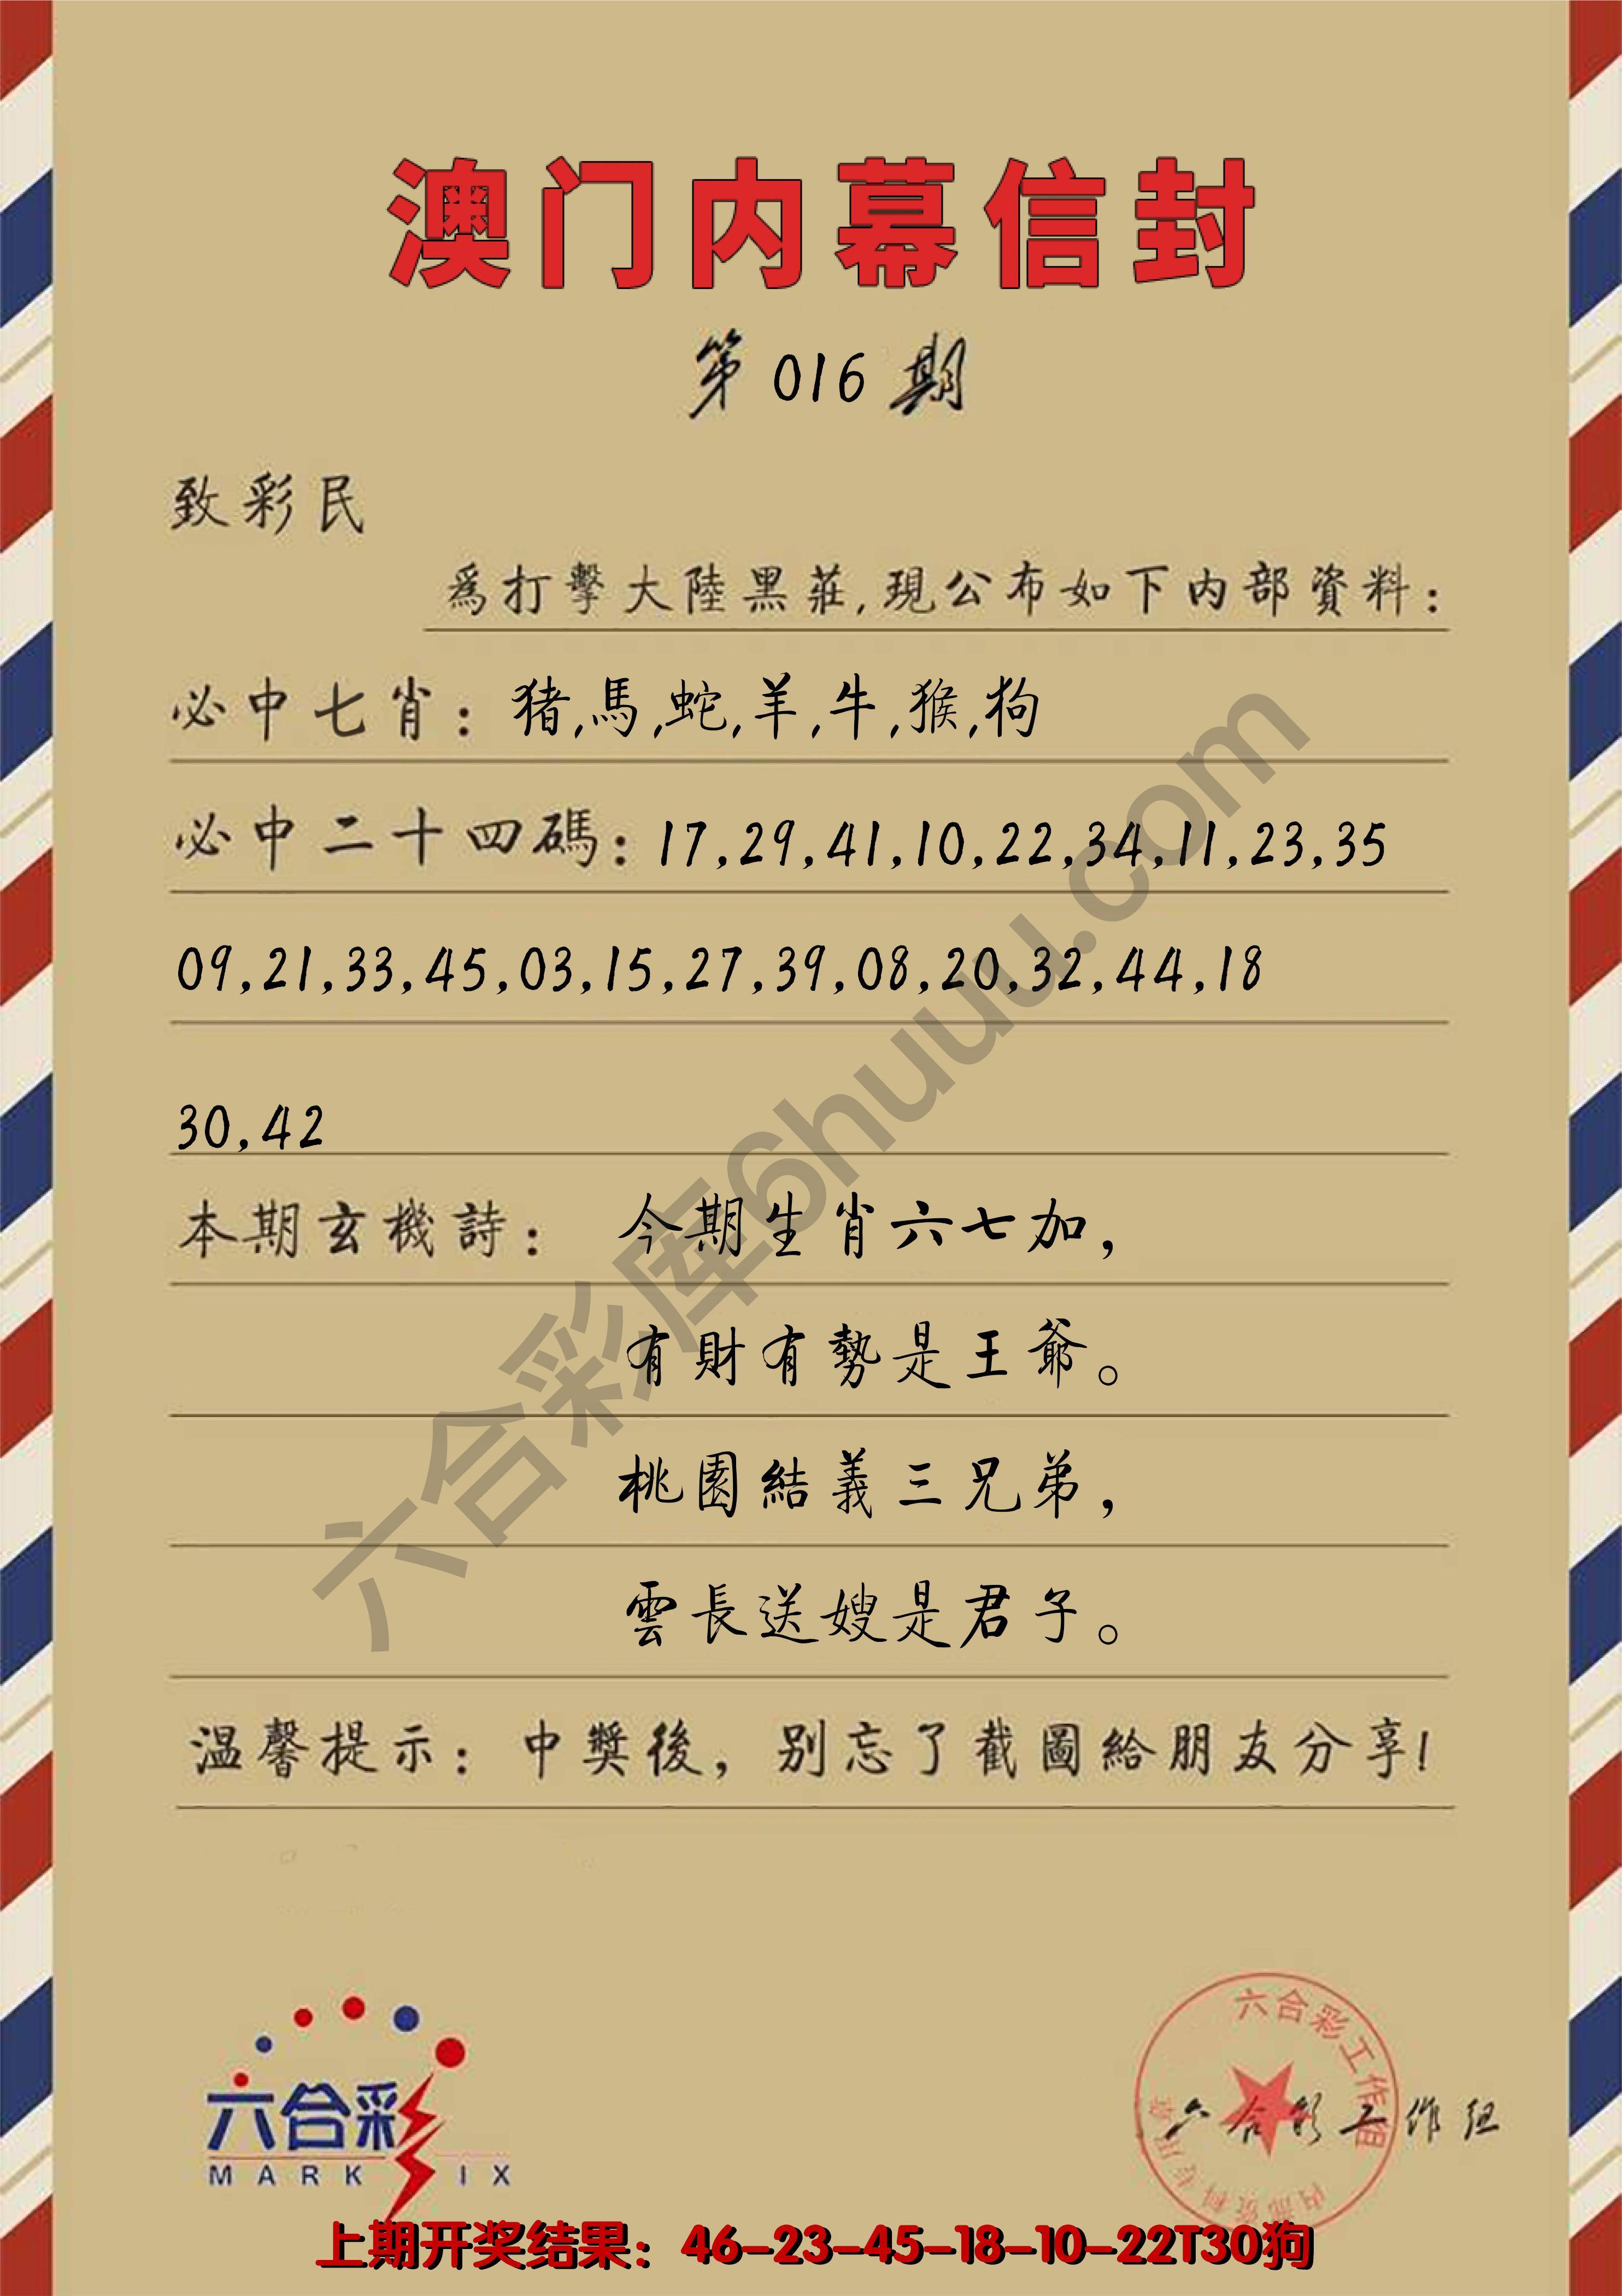 澳门内幕信封
第016期
致彩民
爲打擊大陸黑莊,現公布如下内部資料:
必中七肖:猪,馬,蛇,羊,牛,猴,狗
必中二十四碼:17,29,41,10,22,34,11,23,35
09,21,33,45,03,15,27,39,08,20,32,44,18
30,42
本期玄機詩: 今期生肖六七加,
有財有勢是王爺。
桃園結義三兄弟,
雲長送嫂是君子。
温馨提示:中獎後,别忘了截圖給朋友分享!
六合彩库6huuu.com
六合彩
MARK IX
六合彩工作组
内部资料专用章
六合彩工作组
上期开奖结果:46-23-45-18-10-22T30狗